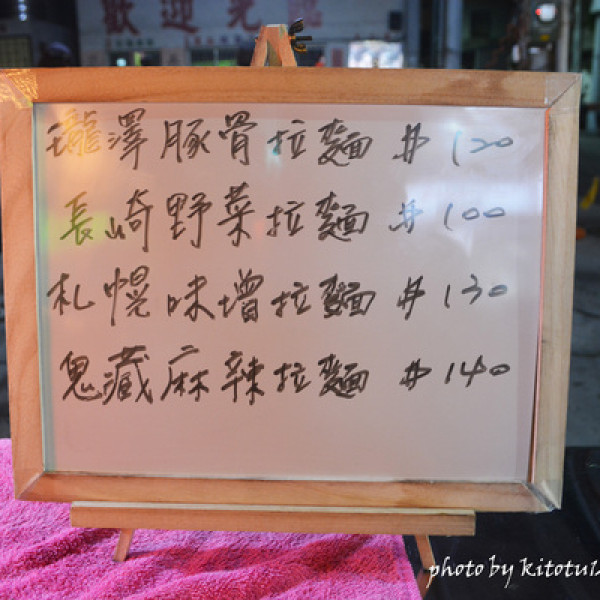 歡迎光臨
瓏澤豚骨拉麵 # 120
長崎野菜拉麵 # 100
札幌味增拉麵 # 130
鬼藏麻辣拉麵 # 140
photo by kitotu12